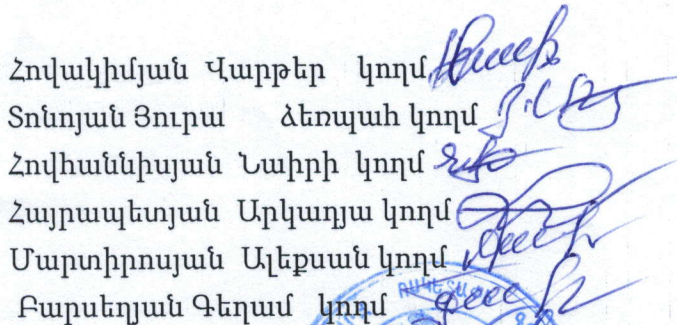 Հովակիմյան Վարթեր կողմ
Տոնոյան Յուրա ձեռպահ կողմ
Հովհաննիսյան Նաիրի կողմ
Հայրապետյան Արկադյա կողմ
Մարտիրոսյան Ալեքսան կողմ
Բարսեղյան Գեղամ կողմ